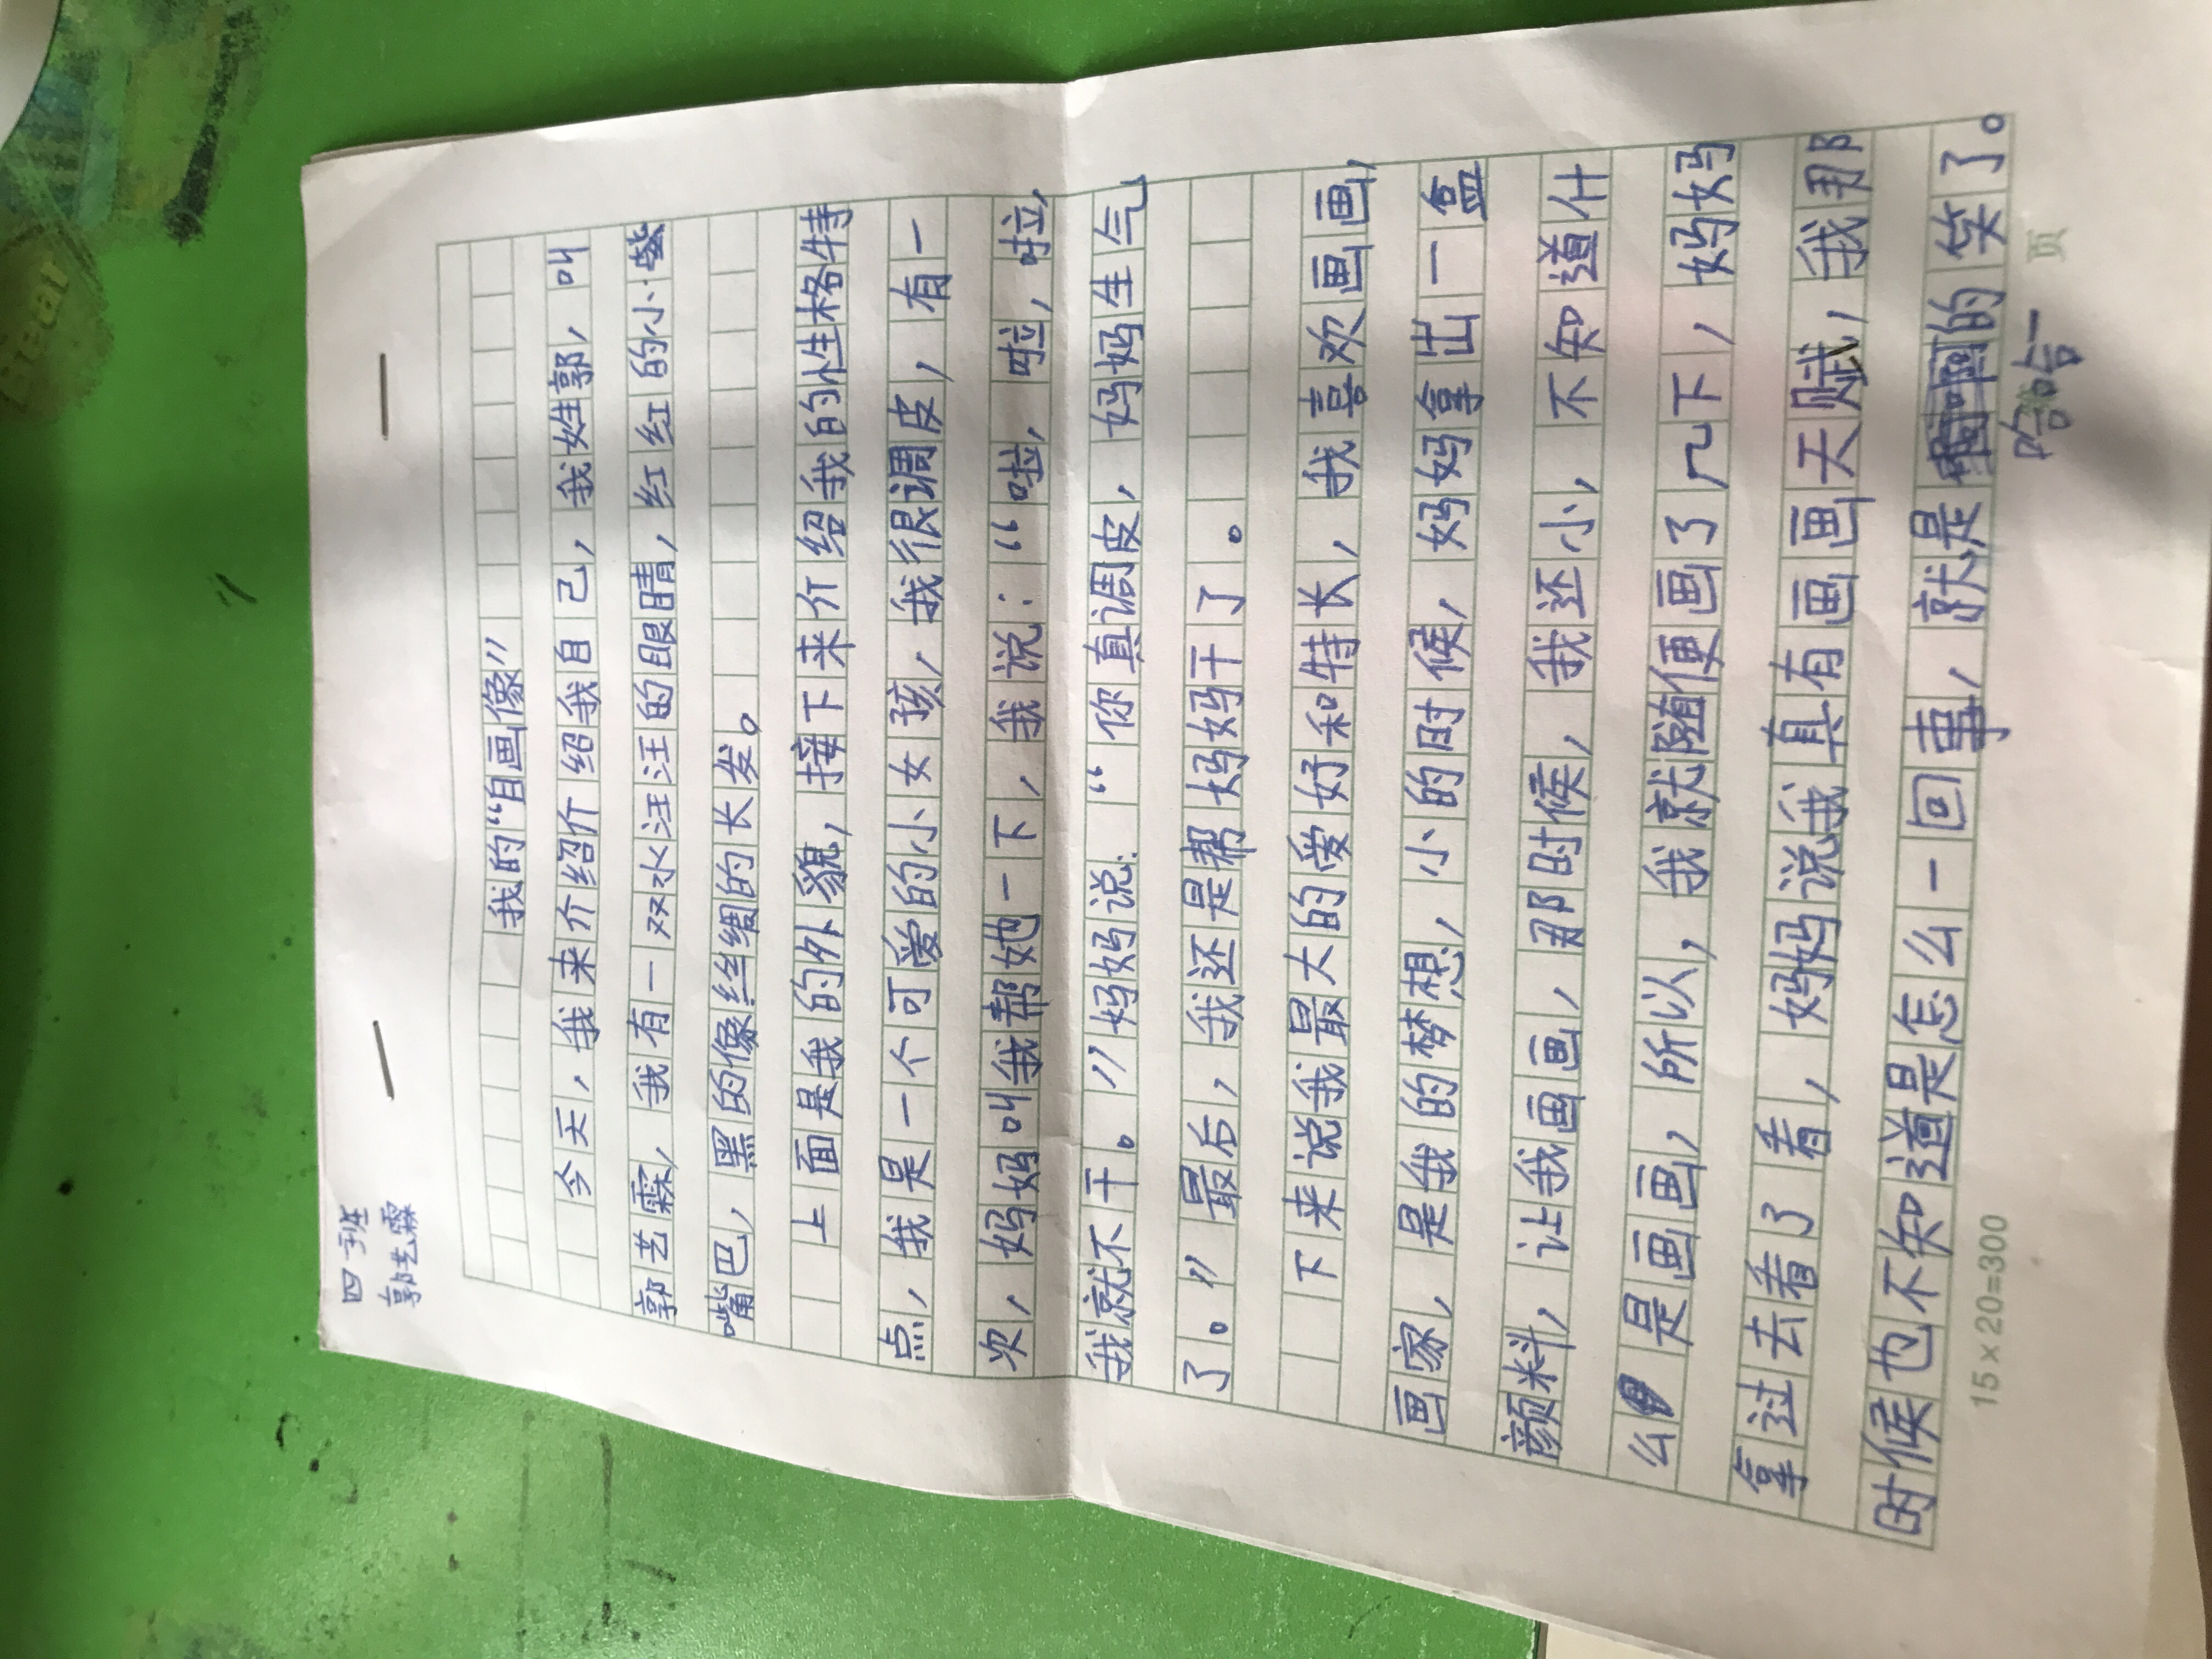 四班
郭艺霖
我的“自画像”
今天，我来介绍介绍我自己，我姓郭，叫
郭艺霖，我有一双水汪汪的眼睛，红红的小嘴
嘴巴，黑的像丝绸的长发。
上面是我的外貌，接下来介绍我的性格特
点，我是一个可爱的小女孩，我很调皮，有一
次，妈妈叫我帮她一下，我说：“啦，啦，啦，
我就不干。”妈妈说：“你真调皮，妈妈生气
了。”最后，我还是帮妈妈干了。
下来说我最大的爱好和特长，我喜欢画画，
画家，是我的梦想，小的时候，妈妈拿出一盒
颜料，让我画画，那时候，我还小，不知道什
么是画画，所以，我就随便画了几下，妈妈
拿过去看了看，妈妈说我真有画画天赋，我那
时候也不知道是怎么一回事，就是的笑了。
哈哈一
15×20=300
页
Bear